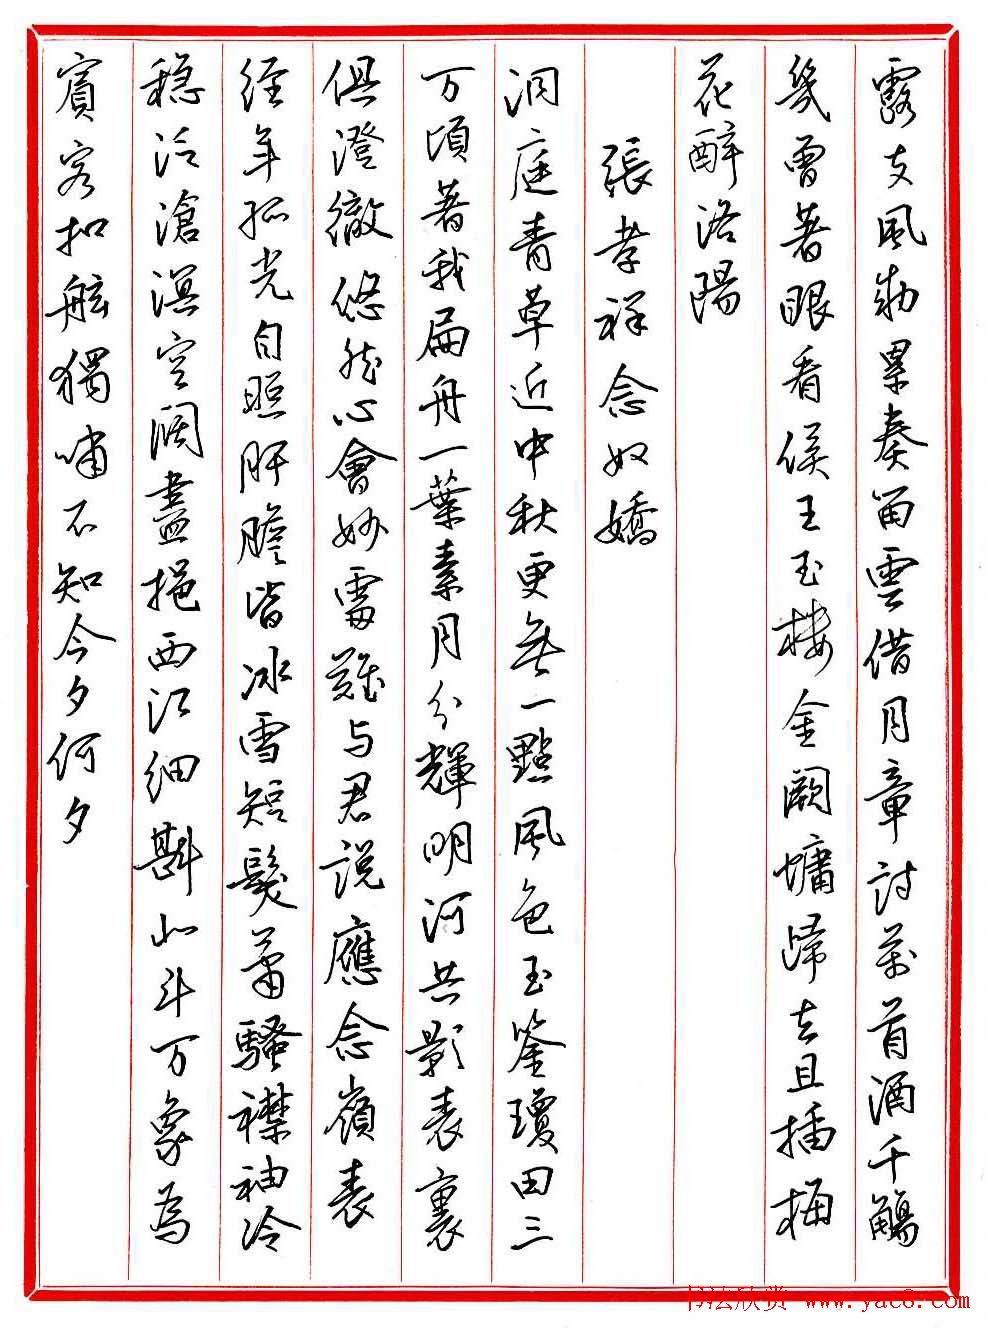 露支風勅累奏留雲借月章詩萬首酒千觴
幾曾著眼看侯王玉樓金闕慵歸去且插梅
花醉洛陽
張孝祥念奴嬌
洞庭青草近中秋更無一點風色玉鑒瓊田三
万頃著我扁舟一葉素月分輝明河共影表裏
俱澄徹悠然心會妙處難与君説應念嶺表
经年孤光自照肝膽皆冰雪短髮蕭騷襟袖冷
穏泛滄溟空闊盡挹西江细斟北斗万象為
賓客扣舷獨嘯不知今夕何夕
书法欣赏 www.yac8.com